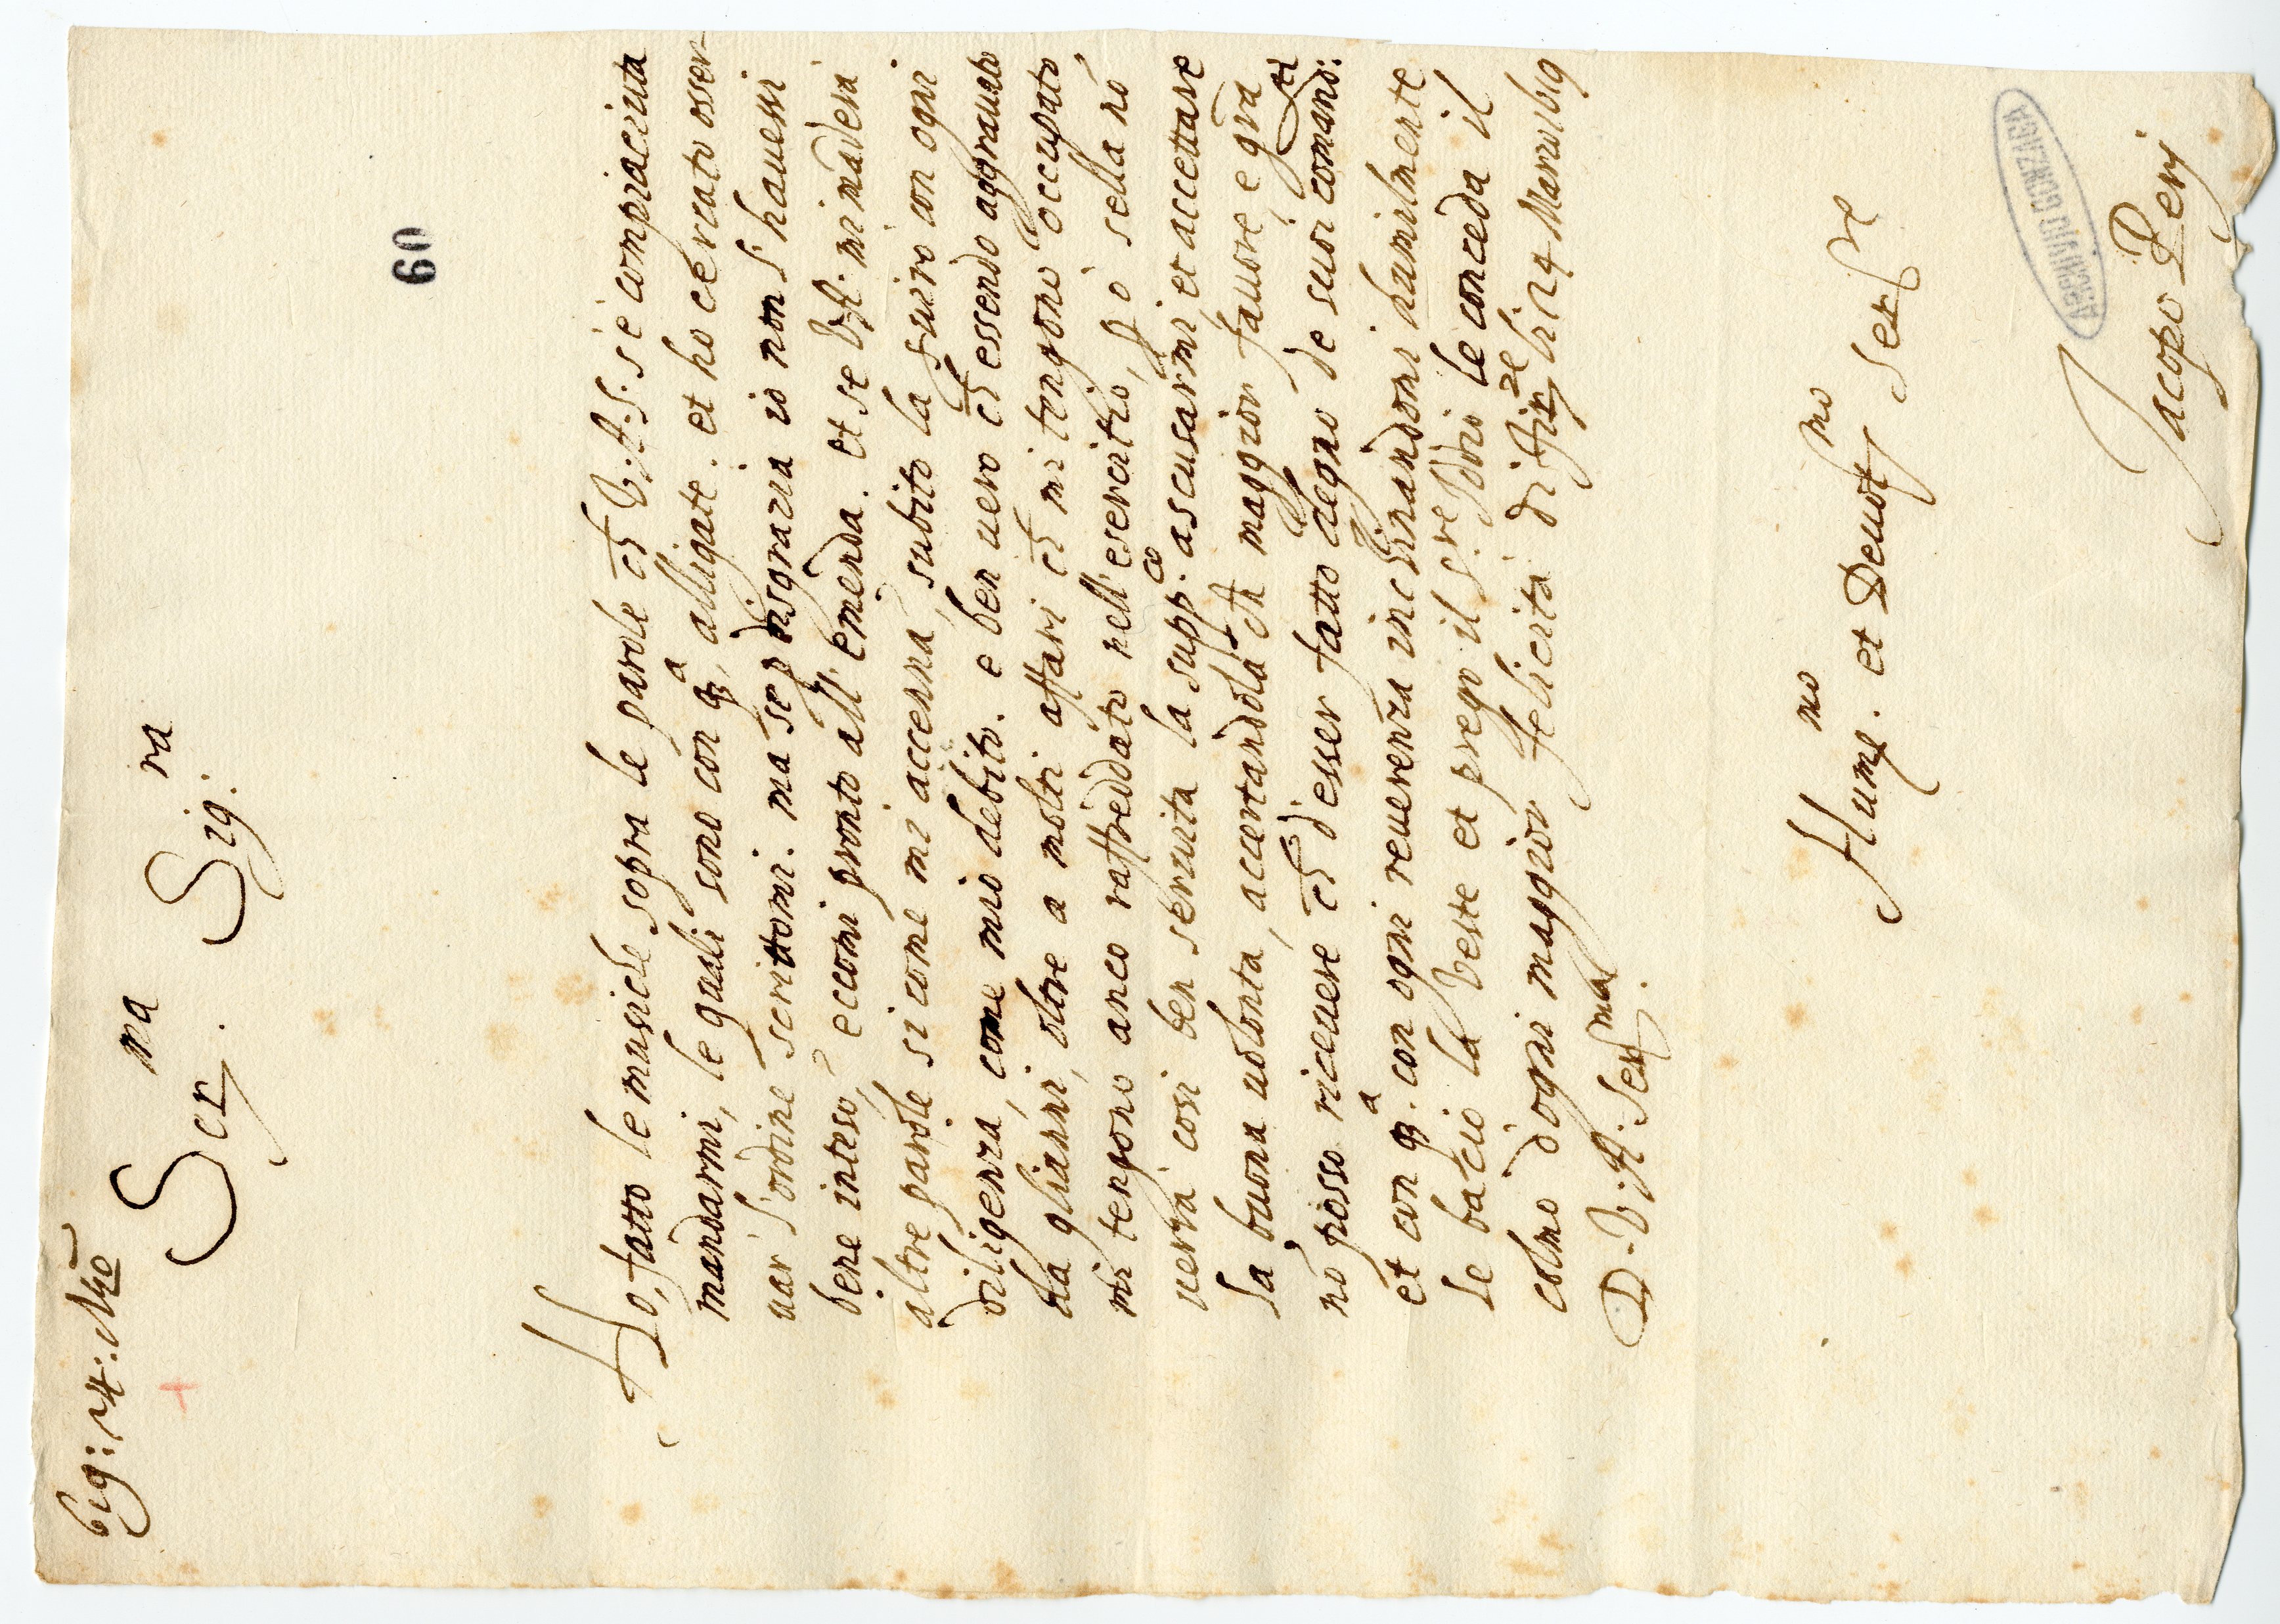 619: 14: Mzo
60
Ser.ma Sig.ra
Ho, fatto le musiche sopra le parole ch V.A.S. s'è compiaciuta
mandarmi, le quali sono con q.a alligate. et ho cercato osser-
uar l'ordine scrittomi. ma se p disgrazia io non l'hauessi
bene inteso, eccomi pronto all'emenda. et se V.A. mi māderà
altre parole si come mi accenna, subito la seruirò con ogni
diligenza, come mio debito. e ben uero ch essendo aggrauato
da gl'anni, oltre a molti affari ch mi tengono occupato,
mi tengono anco raffreddato nell'esercitio, p ò se ella nō
uerrà così ben seruita la supp.co a scusarmi et accettare
la buona uolontà, accertandola ch maggior fauore, e gr̄a
nō posso riceuere ch d'esser fatto degno de suoi comand.ti
et con q.a con ogni reuerenza inchinandomi humilmente
le bacio la veste et prego il S.re Iddio le conceda il
colmo d'ogni maggior felicità di Firze li 14 Marzo 1619
D. V. A. Ser.ma
Humo.mo et Deuot.mo Ser.re
Iacopo Perj
ARCHIVIO GONZAGA